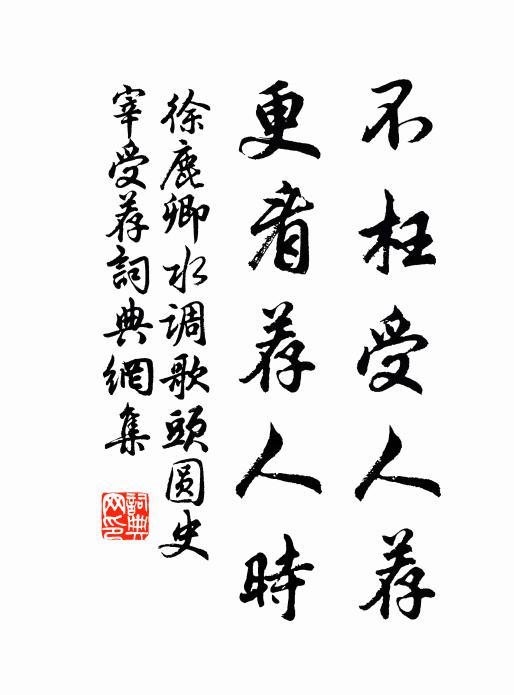 不枉受人荐
更看荐人時
徐鹿卿水调歌頭圆史
宰受荐詞典網集
詞典网印